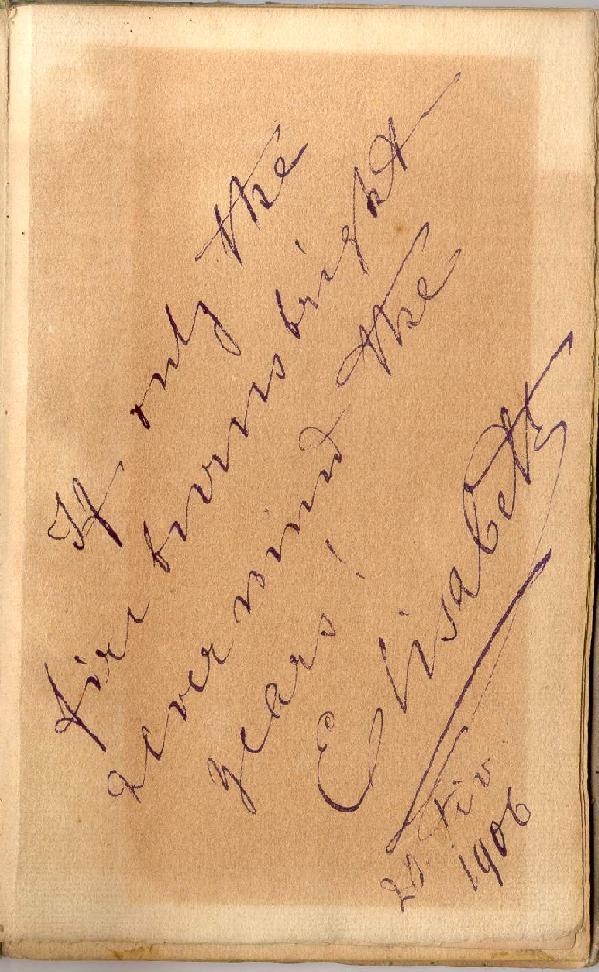 If only the
fire burns bright
never mind the
years!
Elisabeth
1906